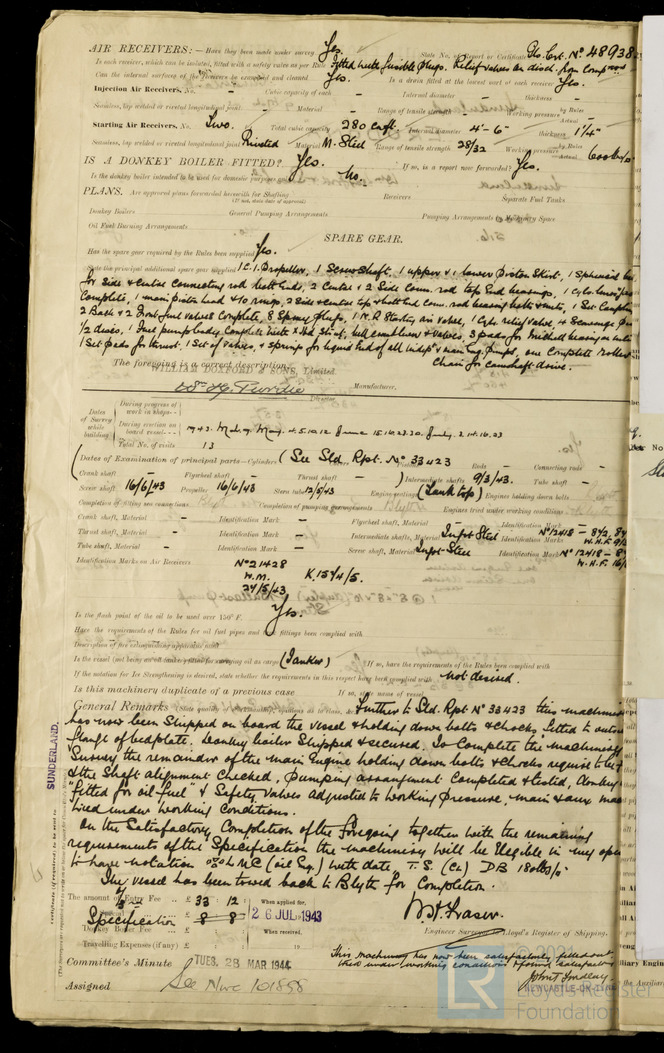 AIR RECEIVERS:— Have they been made under survey Yes. State No. of Report or Certificate Glo. Cert. No 48938
Is each receiver, which can be isolated, fitted with a safety valve as per Rule Fitted with fusible plugs. Relief valves on disch. from compors
Can the internal surfaces of the receivers be examined and cleaned Yes. Is a drain fitted at the lowest part of each receiver Yes.
Injection Air Receivers, No. – Cubic capacity of each – Internal diameter – thickness –
Seamless, lap welded or riveted longitudinal joint – Material – Range of tensile strength – Working pressure by Rules Actual –
Starting Air Receivers, No. Two. Total cubic capacity 280 c.ft. Internal diameter 4'-6" thickness 1¼"
Seamless, lap welded or riveted longitudinal joint Riveted Material M. Steel Range of tensile strength 28/32 Working pressure by Rules Actual 600
IS A DONKEY BOILER FITTED? Yes. If so, is a report now forwarded? Yes.
Is the donkey boiler intended to be used for domestic purposes only No.
PLANS. Are approved plans forwarded herewith for Shafting Receivers Separate Fuel Tanks
(If not, state date of approval)
Donkey Boilers General Pumping Arrangements Pumping Arrangements in Machinery Space
Oil Fuel Burning Arrangements
SPARE GEAR.
Has the spare gear required by the Rules been supplied Yes.
State the principal additional spare gear supplied 1 C.I. Propeller, 1 Screw Shaft, 1 upper & 1 lower Piston Skirt, 1 Spherical
for side & centre connecting rod bott. ends, 2 Centre & 2 Side Conn. rod top End bearings, 1 Cylr.
Complete, 1 main piston head & 10 rings, 2 side & centre top & bott. End conn. rod bearing bolts & nuts, 1 Set
2 Back & 2 Front fuel valves Complete, 8 Spray plugs, 1 Starting air valve, 1 Cylr. relief valve, 4 Scavenge
½ discs, 1 Fuel pump body Complete with bell crank lever & valves, 3 pads for Michell bearing
1 Set pads for thrust. 1 Set of valves, & springs for liquid End of all indept & main Eng. pumps, one Complete roller
chain for camshaft drive.
The foregoing is a correct description,
WILLIAM DOXFORD & SONS, Limited.
Wm H. Purdie Manufacturer.
Director
Dates of Survey while building
During progress of work in shops - -
During erection on board vessel - - 1943. May. 4.5.10.12 June 15.16.23.30. July. 2.14.16.23
Total No. of visits 13
Dates of Examination of principal parts—Cylinders (See Std. Rpt. No 33423 Rods – Connecting rods –
Crank shaft – Flywheel shaft – Thrust shaft – ) Intermediate shafts 9/3/43. Tube shaft –
Screw shaft 16/6/43 Propeller 16/6/43 Stern tube 12/5/43 Engine seating (Tank top) Engines holding down bolts
Completion of fitting sea connections Completion of pumping arrangements Blyth Engines tried under working conditions
Crank shaft, Material – Identification Mark – Flywheel shaft, Material – Identification Mark –
Thrust shaft, Material – Identification Mark – Intermediate shafts, Material Ingot Steel Identification Marks No 12418 - 842,
W.H.F.
Tube shaft, Material – Identification Mark – Screw shaft, Material Ingot Steel Identification Mark No 12418 -
W.H.F. 16/
Identification Marks on Air Receivers No 21428
W.M. K.1544/5
24/5/43
Is the flash point of the oil to be used over 150° F. Yes.
Have the requirements of the Rules for oil fuel pipes and tank fittings been complied with
Description of fire extinguishing apparatus fitted
Is the vessel (not being an oil tanker) fitted for carrying oil as cargo (Tanker) If so, have the requirements of the Rules been complied with
If the notation for Ice Strengthening is desired, state whether the requirements in this respect have been complied with not desired.
Is this machinery duplicate of a previous case If so, state name of vessel
General Remarks Further to Std. Rpt. No 33423 this machinery
has now been shipped on board the vessel & holding down bolts & chocks fitted to outer
flange of bedplate. Donkey boiler shipped & secured. To Complete the Machinery
Survey the remainder of the main Engine holding down bolts & chocks require to be
& the shaft alignment checked, pumping arrangement completed & tested, donkey
fitted for oil fuel & safety valves adjusted to working pressure, main & aux.
tried under working conditions.
On the satisfactory completion of the foregoing together with the remaining
requirements of the Specification the machinery will be Elegible in my
to have notation LMC (oil Eng.) with date T.S. (CL) DB 180 lbs
The vessel has been towed back to Blyth for Completion.
The amount of Entry Fee .. £ 33 : 12 When applied for,
Specification £ 8 - 8 26 JUL 1943
Donkey Boiler Fee ... £ When received,
Travelling Expenses (if any) £ 19
W.H. Fraser.
Engineer Surveyor to Lloyd's Register of Shipping.
Committee's Minute TUES. 28 MAR 1944
Assigned See Nwc 101858
This machinery has now been satisfactorily fitted out
tried under working conditions & found satisfactory
John T. Findlay
NEWCASTLE-ON-TYNE
SUNDERLAND.
© 2021
LR
Lloyd's Register
Foundation